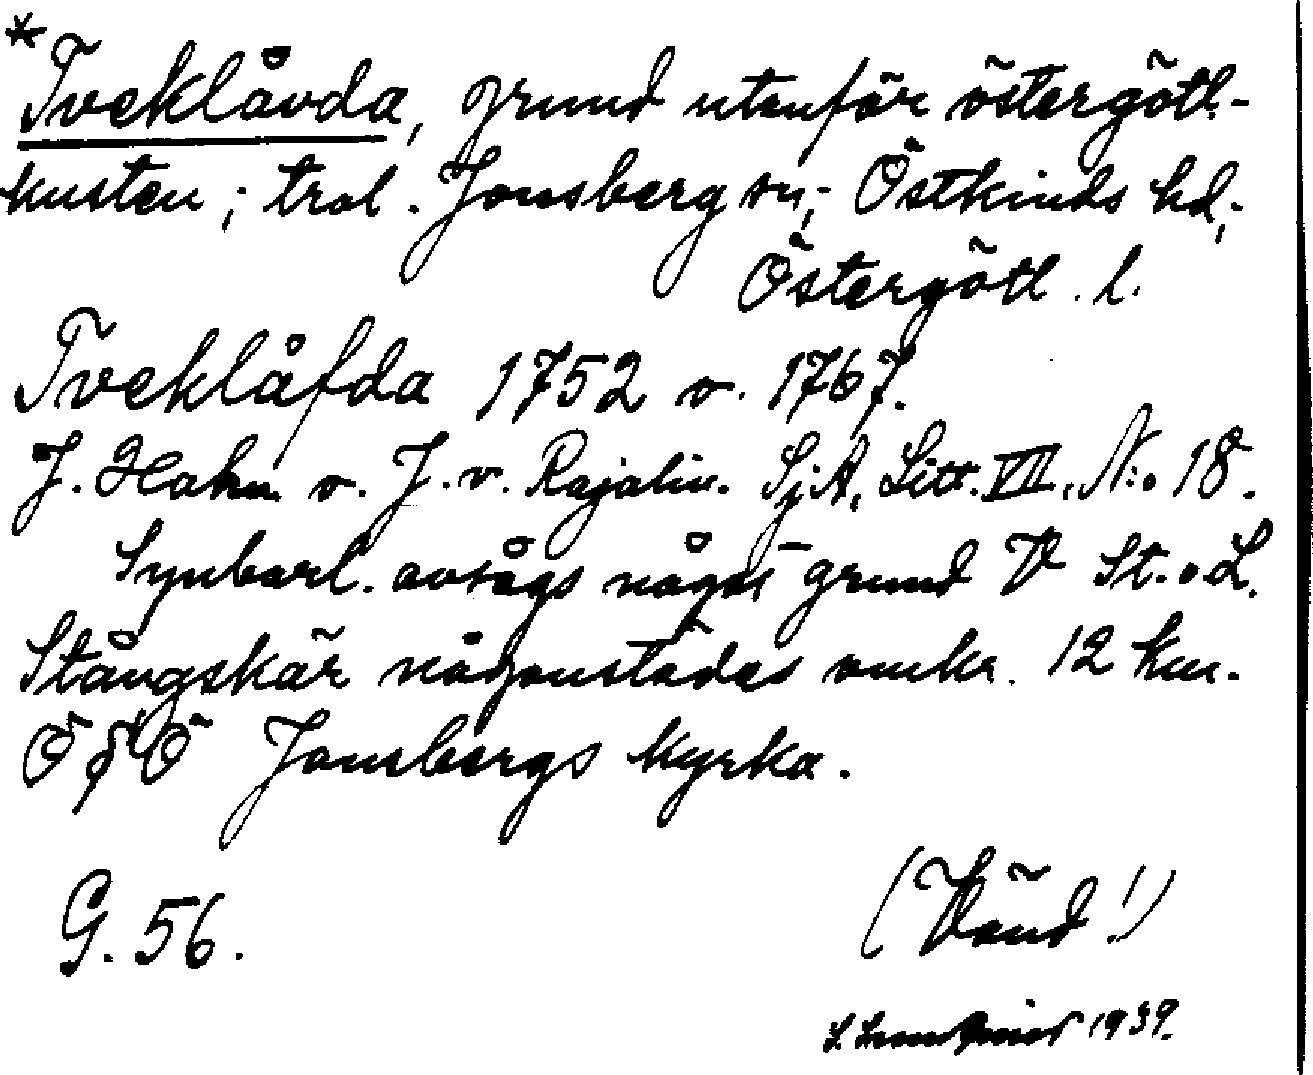 *Tveklåvda, grund utanför östergötl.-
kusten; trol. Jonsberg sn; Östkinds hd;
Östergötl. l.
Tveklåfda 1752 o. 1767.
J. Hahn o. J. v. Rajalin. SjA, Litt. VII. N:o 18.
Synbarl. avsågs något grund V St. o L.
Stångskär någonstädes omkr. 12 km.
Ö t Ö Jonsbergs kyrka.
G. 56.
(Vänd!)
1939.